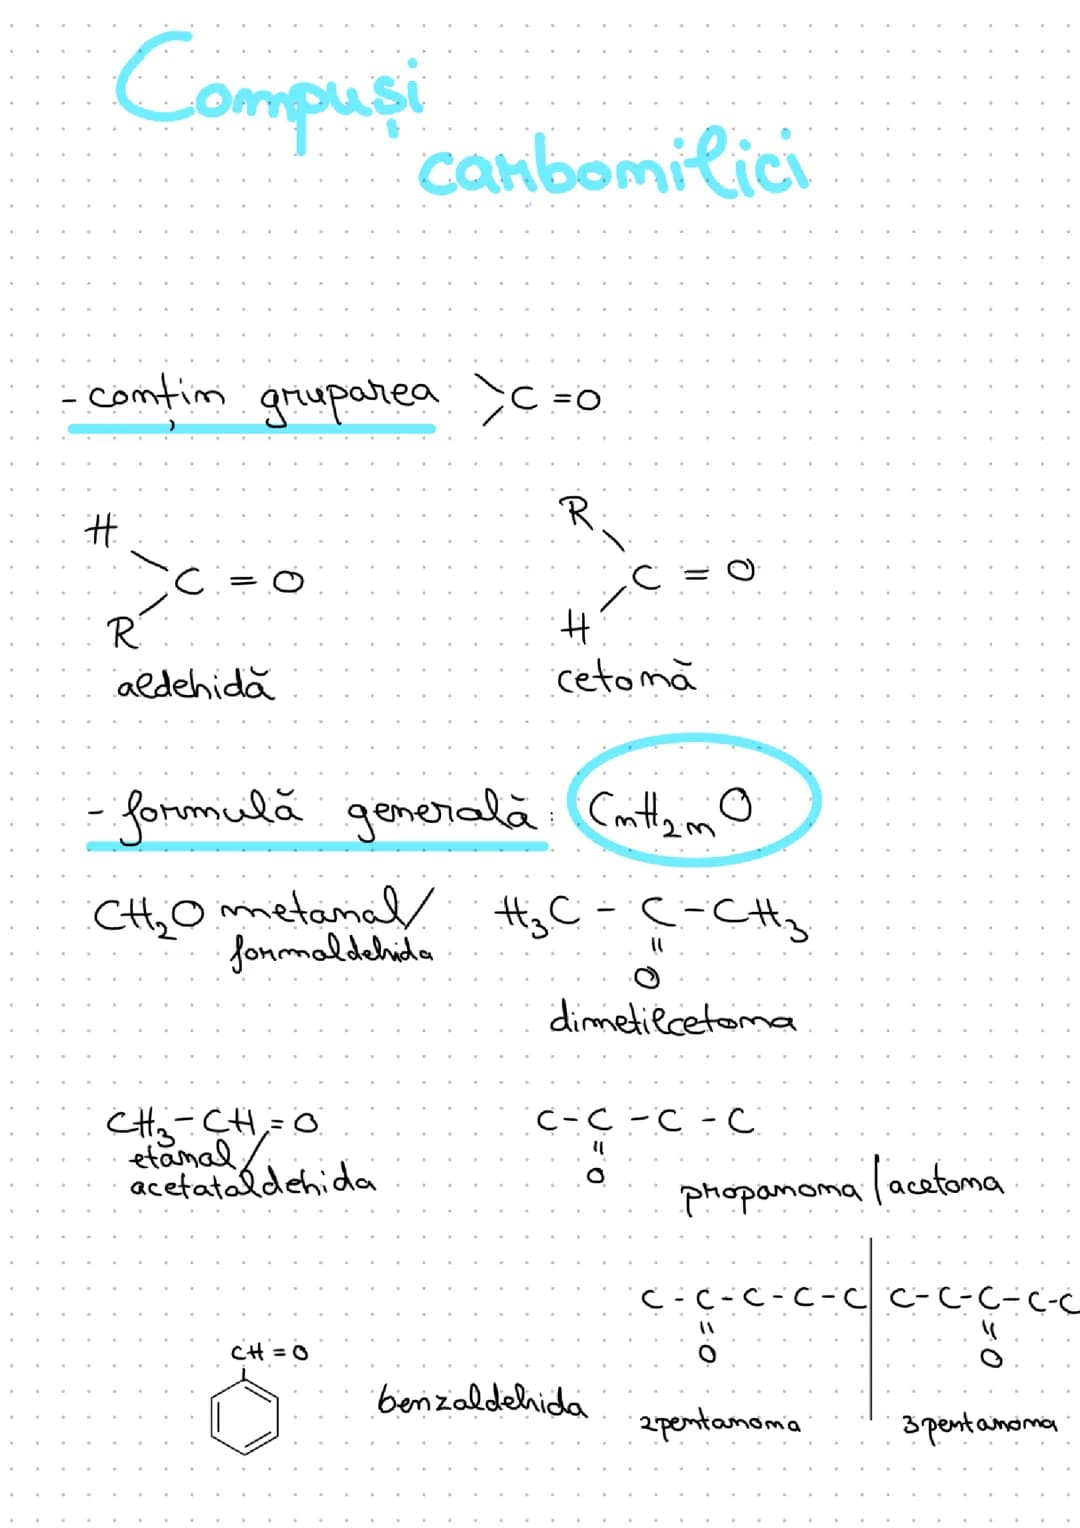 Compuși
carbonilici
- conțin gruparea >C=O
H
C = O
R
aldehidă
R
C = O
H
cetonă
- formulă generală: CnH2nO
CH2O metanal/
formaldehida
H3C - C - CH3
=
O
dimetilcetona
CH3-CH=O
etanal/
acetataldehida
C-C-C-C
=
O
propanona/acetona
C-C-C-C-C | C-C-C-C-C
= =
O O
2pentanona 3pentanona
CH=O
benzaldehida